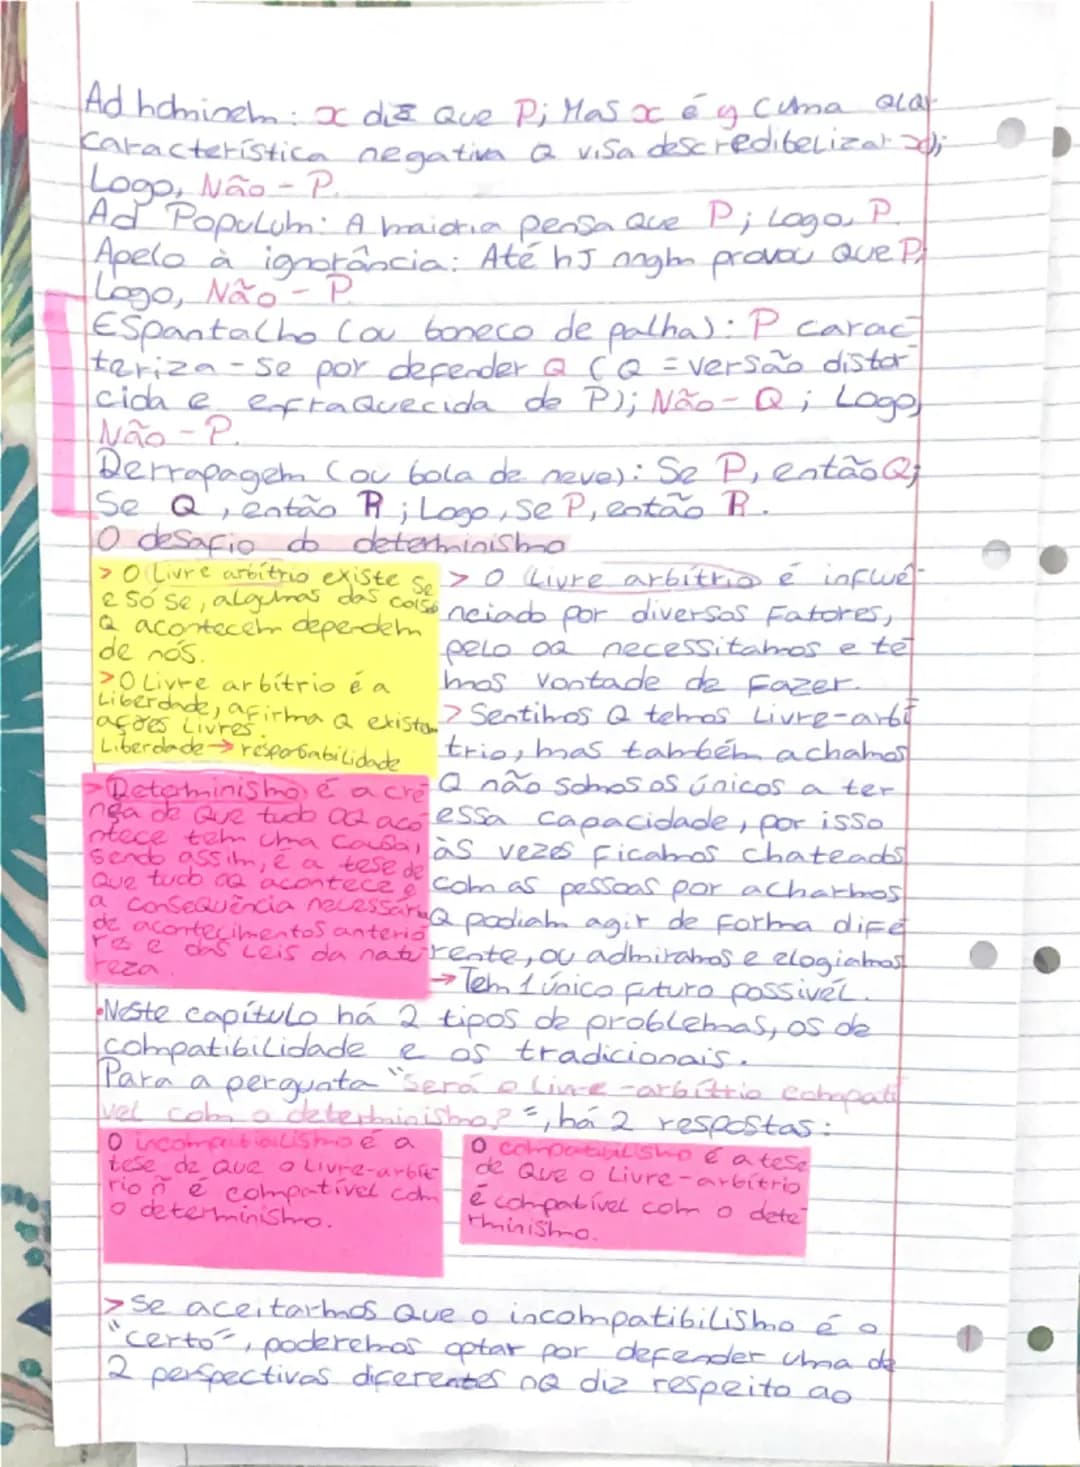 Ad hominem: x diz que P; Mas x é y (uma qlqr
característica negativa q visa descredibelizar x);
Logo, Não - P.
Ad Populum: A maioria pensa que P; Logo, P.
Apelo à ignorância: Até hj ningm provou que P;
Logo, Não - P
Espantalho (ou boneco de palha): P carac
teriza-se por defender Q (Q = versão distor
cida e enfraquecida de P); Não - Q; Logo,
Não - P.
Derrapagem (ou bola de neve): Se P, então Q;
Se Q, então R; Logo, se P, então R.
O desafio do determinismo
> O Livre arbítrio existe se
e só se, algumas das coisas
q acontecem dependem
de nós.
> O Livre arbítrio é a
Liberdade, afirma q existam
ações Livres.
Liberdade → responsabilidade
> Determinismo é a cre
nça de que tudo oq aco
ntece tem uma causa,
sendo assim, é a tese de
que tudo oq acontece é
a consequência necessária
de acontecimentos anterio
res e das Leis da natu
reza.
> O Livre arbítrio é influe
nciado por diversos Fatores,
pelo oq necessitamos e te
mos vontade de Fazer.
> Sentimos q temos Livre-arbí
trio, mas também achamos
q não somos os únicos a ter
essa capacidade, por isso
às vezes ficamos chateads
com as pessoas por acharmos
q podiam agir de forma dife
rente, ou admiramos e elogiamos
→ Tem 1 único futuro possivél.
•Neste capítulo há 2 tipos de problemas, os de
compatibilidade e os tradicionais.
Para a pergunta "será o Livre-arbítrio compatí
vel com o determinismo?", há 2 respostas:
O incompatibilismo é a
tese de que o Livre-arbít
rio ñ é compatível com
o determinismo.
O compatibilismo é a tese
de que o Livre-arbítrio
é compatível com o dete
rminismo.
> Se aceitarmos que o incompatibilismo é o
"certo", poderemos optar por defender uma de
2 perspectivas diferentes nq diz respeito ao